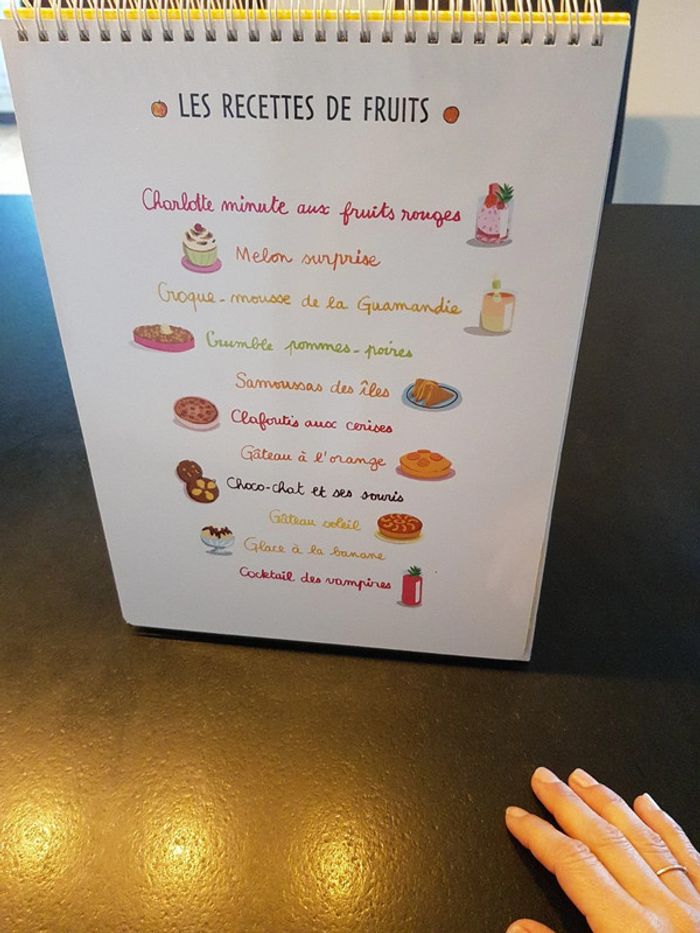 LES RECETTES DE FRUITS
Charlotte minute aux fruits rouges
Melon surprise
Croque-mousse de la Guamandie
Crumble pommes-poires
Samoussas des îles
Clafoutis aux cerises
Gâteau à l'orange
Choco-chat et ses souris
Gâteau soleil
Glace à la banane
Cocktail des vampires